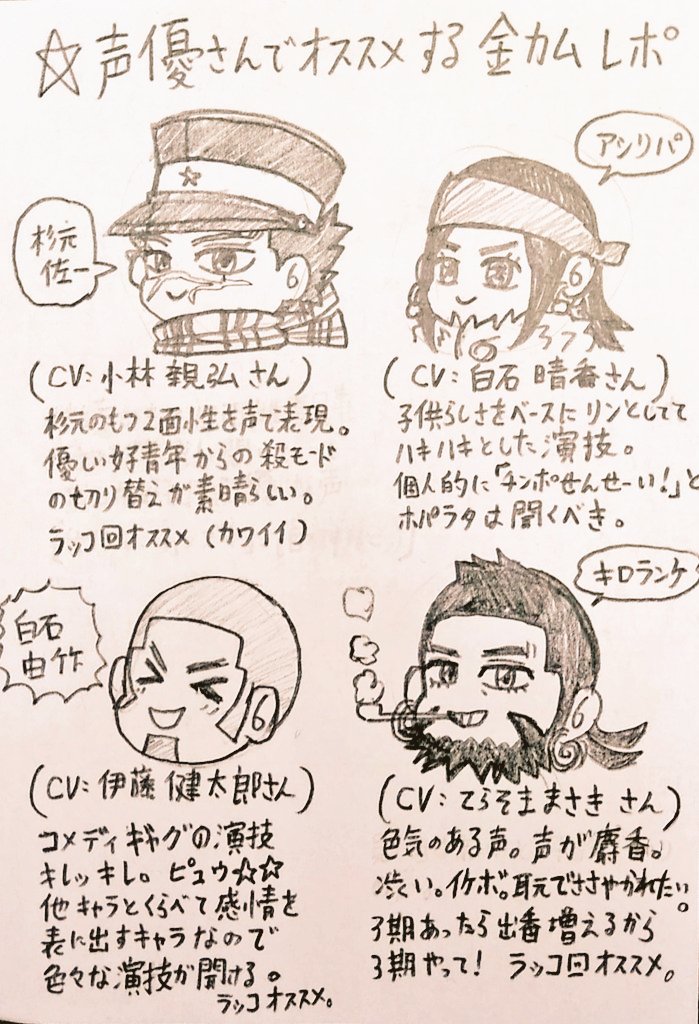 ☆声優さんでオススメする金カムレポ
杉元
佐一
アシリパ
(CV:小林親弘さん)
杉元のもつ2面性を声で表現。
優しい好青年からの殺モード
の切り替えが素晴らしい。
ラッコ回オススメ(カワイイ)
(CV:白石晴香さん)
子供らしさをベースにリンとしてて
ハキハキとした演技。
個人的に「チンポせんせーい!」と
ホパラタは聞くべき。
白石
由竹
キロランケ
(CV:伊藤健太郎さん)
コメディギャグの演技
キレッキレ。ピュウ☆☆
他キャラとくらべて感情を
表に出すキャラなので
色々な演技が聞ける。
ラッコオススメ。
(CV:てらそままさきさん)
色気のある声。声が麝香。
渋い。イケボ。耳元でささやかれたい。
3期あったら出番増えるから
3期やって! ラッコ回オススメ。